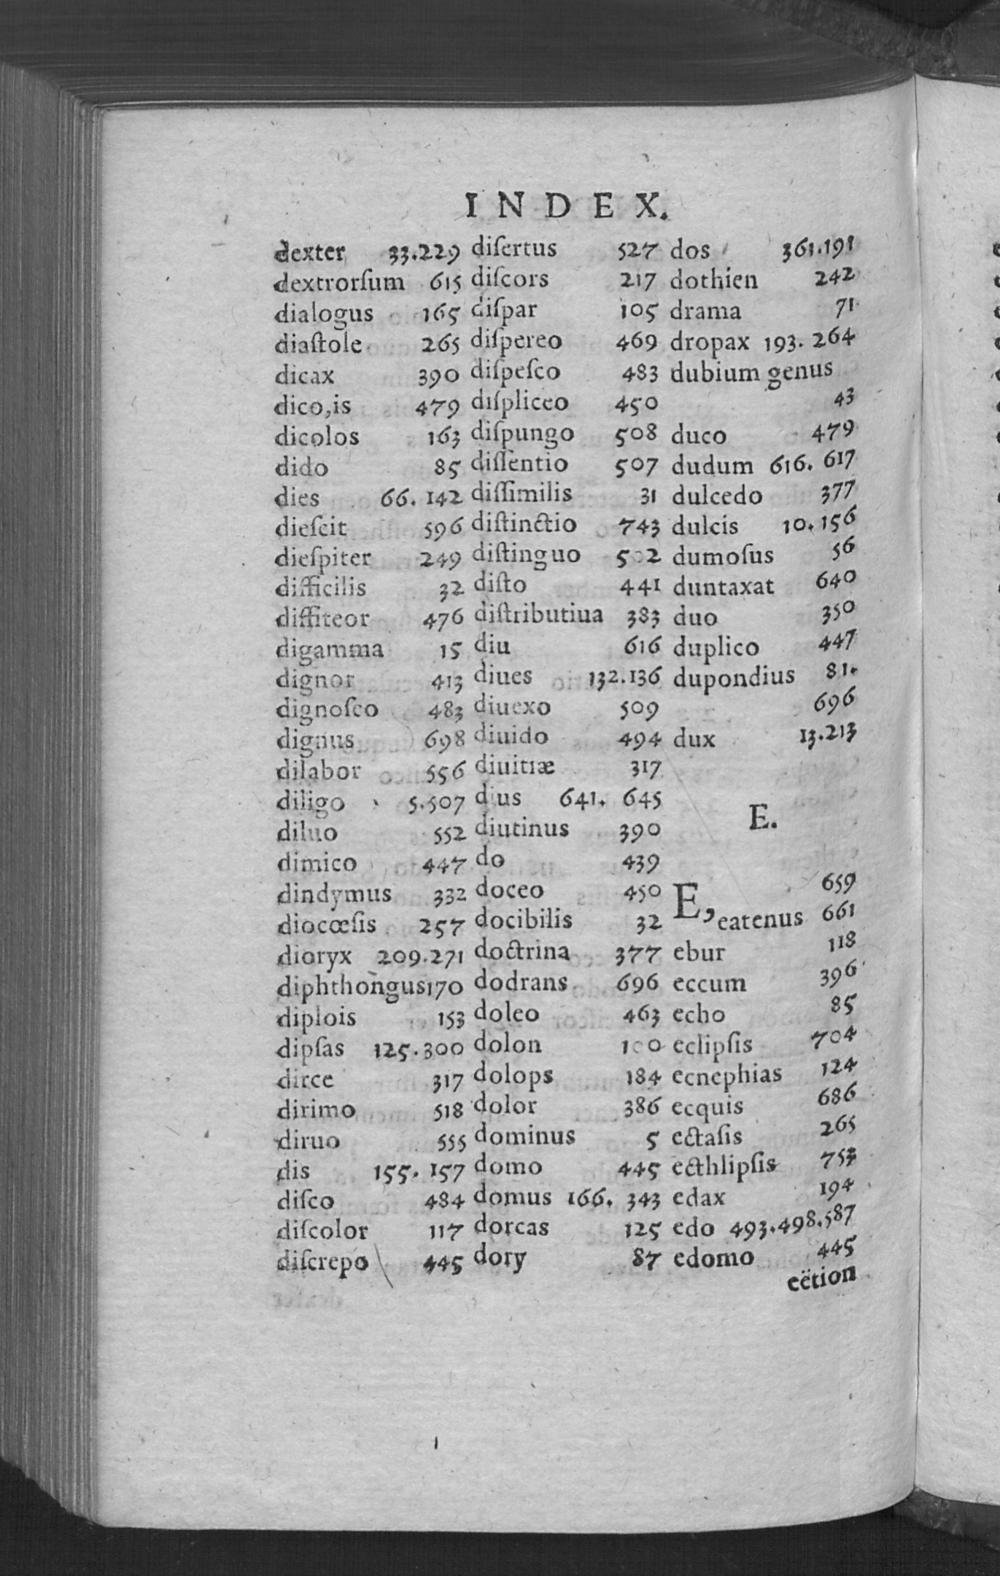 INDEX.
dexter 33.229
dextrorſum 615
dialogus 165
diaſtole 265
dicax 390
dico,is 479
dicolos 163
dido 85
dies 66. 142
dieſcit 596
dieſpiter 249
difficilis 32
diffiteor 476
digamma 15
dignor 413
dignoſco 483
dignus 698
dilabor 556
diligo 5.507
diluo 552
dimico 447
dindymus 332
diocœſis 257
dioryx 209.271
diphthongus 170
diplois 153
dipſas 125.300
dirce 317
dirimo 518
diruo 555
dis 155. 157
diſco 484
diſcolor 117
diſcrepo 445
diſertus 527
diſcors 217
diſpar 105
diſpereo 469
diſpeſco 483
diſpliceo 450
diſpungo 508
diſſentio 507
diſſimilis 31
diſtinctio 743
diſtinguo 502
diſto 441
diſtributiua 383
diu 616
diues 132.136
diuexo 509
diuido 494
diuitiæ 317
dius 641. 645
diutinus 390
do 439
doceo 450
docibilis 32
doctrina 377
dodrans 696
doleo 463
dolon 100
dolops 184
dolor 386
dominus 5
domo 445
domus 166. 343
dorcas 125
dory 87
dos 361.191
dothien 242
drama 71
dropax 193. 264
dubium genus
43
duco 479
dudum 616. 617
dulcedo 377
dulcis 10.156
dumoſus 56
duntaxat 640
duo 350
duplico 447
dupondius 81.
696
dux 13.213
E.
E, 659
eatenus 661
ebur 118
eccum 396
echo 85
eclipſis 704
ecnephias 124
ecquis 686
ectaſis 265
ecthlipſis 753
edax 194
edo 493.498.587
edomo 445
eëtion